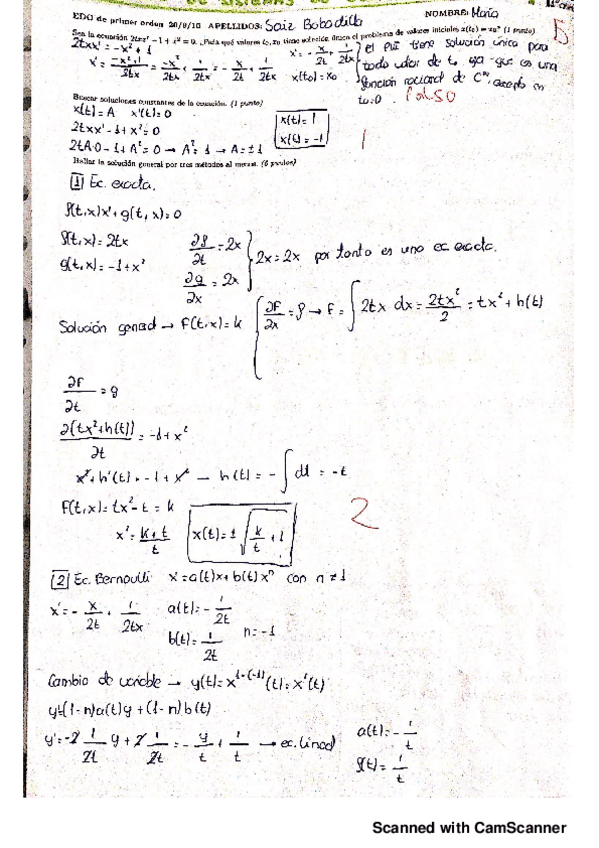 EDO de primer orden 20/9/10 APELLIDOS: Saiz Bobadilla NOMBRE: María
Sea la ecuación 2txx' - 1 + x² = 0. ¿Para qué valores t₀, x₀ tiene solución única el problema de valores iniciales x(t₀) = x₀? (1 punto)
5
2txx' = -x² + 1
x' = (-x²+1)/(2tx) = -x²/(2tx) + 1/(2tx) = -x/(2t) + 1/(2tx)
x' = -x/(2t) + 1/(2tx)
x(t₀) = x₀
el PVI tiene solución única para
todo valor de t₀ ya que es una
función racional de C^∞, excepto en
t₀=0. Falso
Buscar soluciones constantes de la ecuación. (1 punto)
x(t) = A x'(t) = 0
2txx' - 1 + x² = 0
2tA·0 - 1 + A² = 0 → A² = 1 → A = ±1
x(t) = 1
x(t) = -1
1
Hallar la solución general por tres métodos al menos. (6 puntos)
1 Ec. exacta.
f(t,x)x' + g(t,x) = 0
f(t,x) = 2tx
g(t,x) = -1 + x²
∂f/∂t = 2x
∂g/∂x = 2x
2x = 2x por tanto es una ec. exacta.
Solución general → F(t,x) = k
∂F/∂x = f → F = ∫ 2tx dx = 2tx²/2 = tx² + h(t)
∂F/∂t = g
∂(tx² + h(t))/∂t = -1 + x²
x² + h'(t) = -1 + x² → h(t) = -∫ dt = -t
F(t,x) = tx² - t = k
x² = (k+t)/t
x(t) = ± √(k/t + 1)
2
2 Ec. Bernoulli x' = a(t)x + b(t)xⁿ con n ≠ 1
x' = -x/(2t) + 1/(2tx)
a(t) = -1/(2t)
b(t) = 1/(2t)
n = -1
Cambio de variable → y(t) = x^(1-(-1))(t) = x²(t)
y' = (1-n)a(t)y + (1-n)b(t)
y' = -2 1/(2t) y + 2 1/(2t) = -y/t + 1/t → ec. lineal
a(t) = -1/t
g(t) = 1/t
Scanned with CamScanner